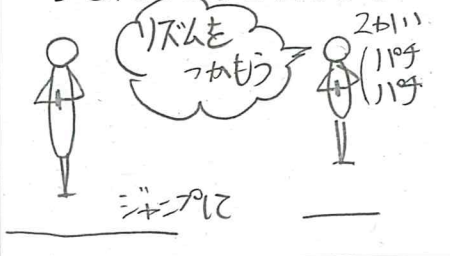 リズムを
つかもう
2かい
パチ
パチ
ジャンプして